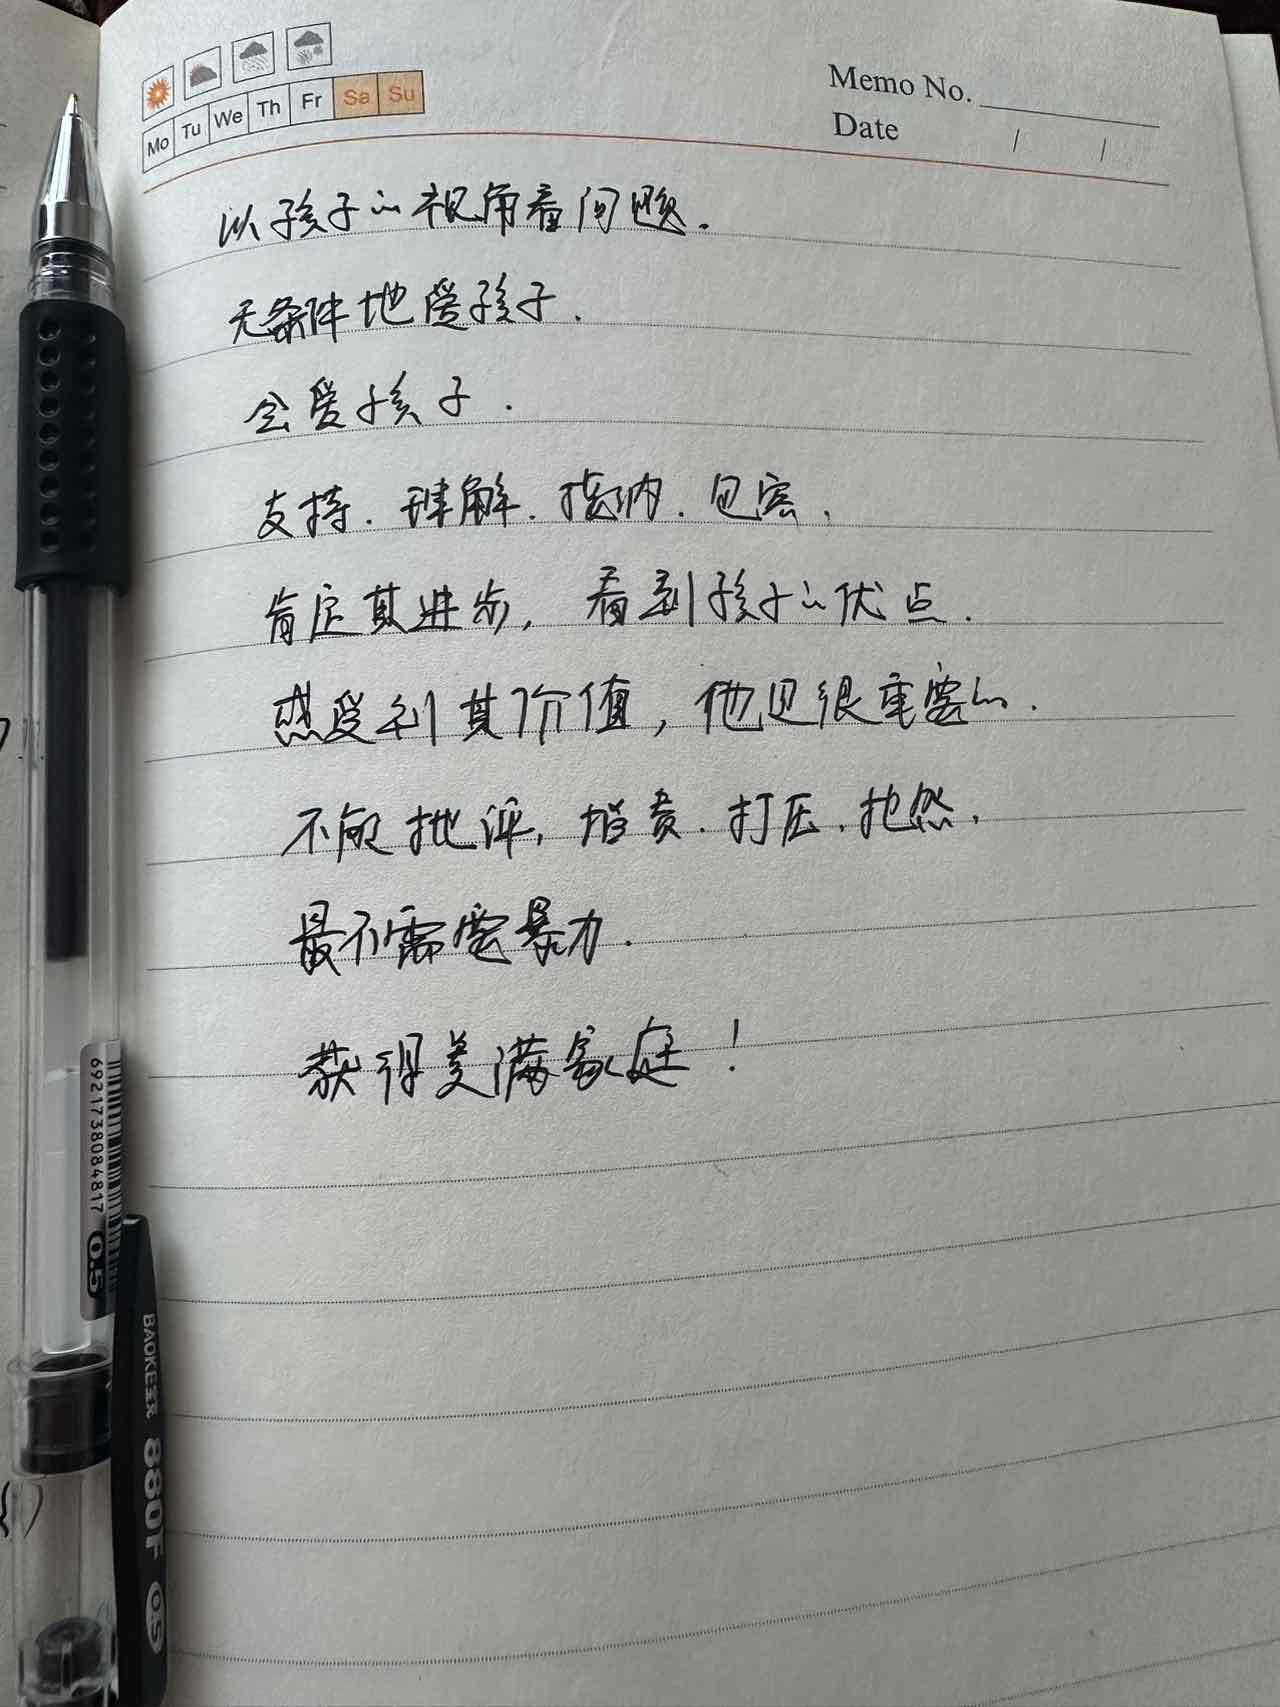 Mo Tu We Th Fr Sa Su
Memo No.
Date / /
以孩子的视角看问题.
无条件地爱孩子.
会爱孩子.
支持、理解、接纳、包容、
肯定其进步, 看到孩子的优点.
感受到其价值, 他是很重要的.
不能批评, 指责、打压、抱怨,
最不需要暴力.
获得美满家庭!
6921738084817
0.5
BAOKE宝克
880F
0.5